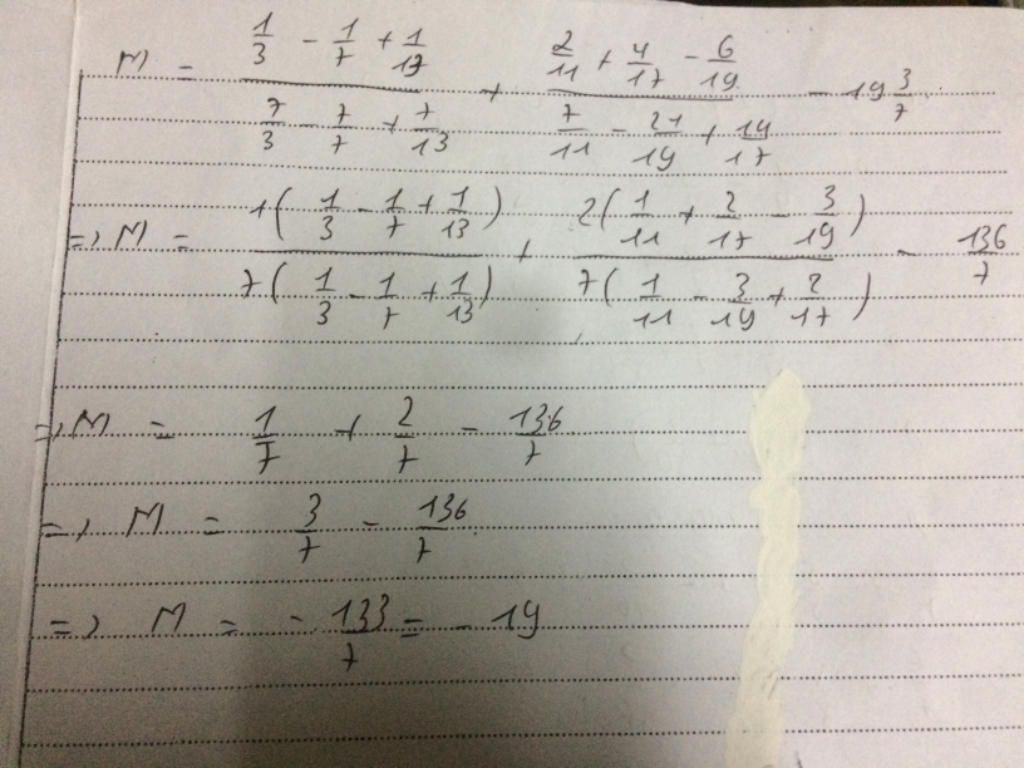 M = (1/3 - 1/7 + 1/13) / (7/3 - 7/7 + 7/13) + (2/11 + 4/17 - 6/19) / (7/11 - 21/19 + 14/17) - 19 3/7
=> M = 1(1/3 - 1/7 + 1/13) / 7(1/3 - 1/7 + 1/13) + 2(1/11 + 2/17 - 3/19) / 7(1/11 - 3/19 + 2/17) - 136/7
=> M = 1/7 + 2/7 - 136/7
=> M = 3/7 - 136/7
=> M = - 133/7 = - 19